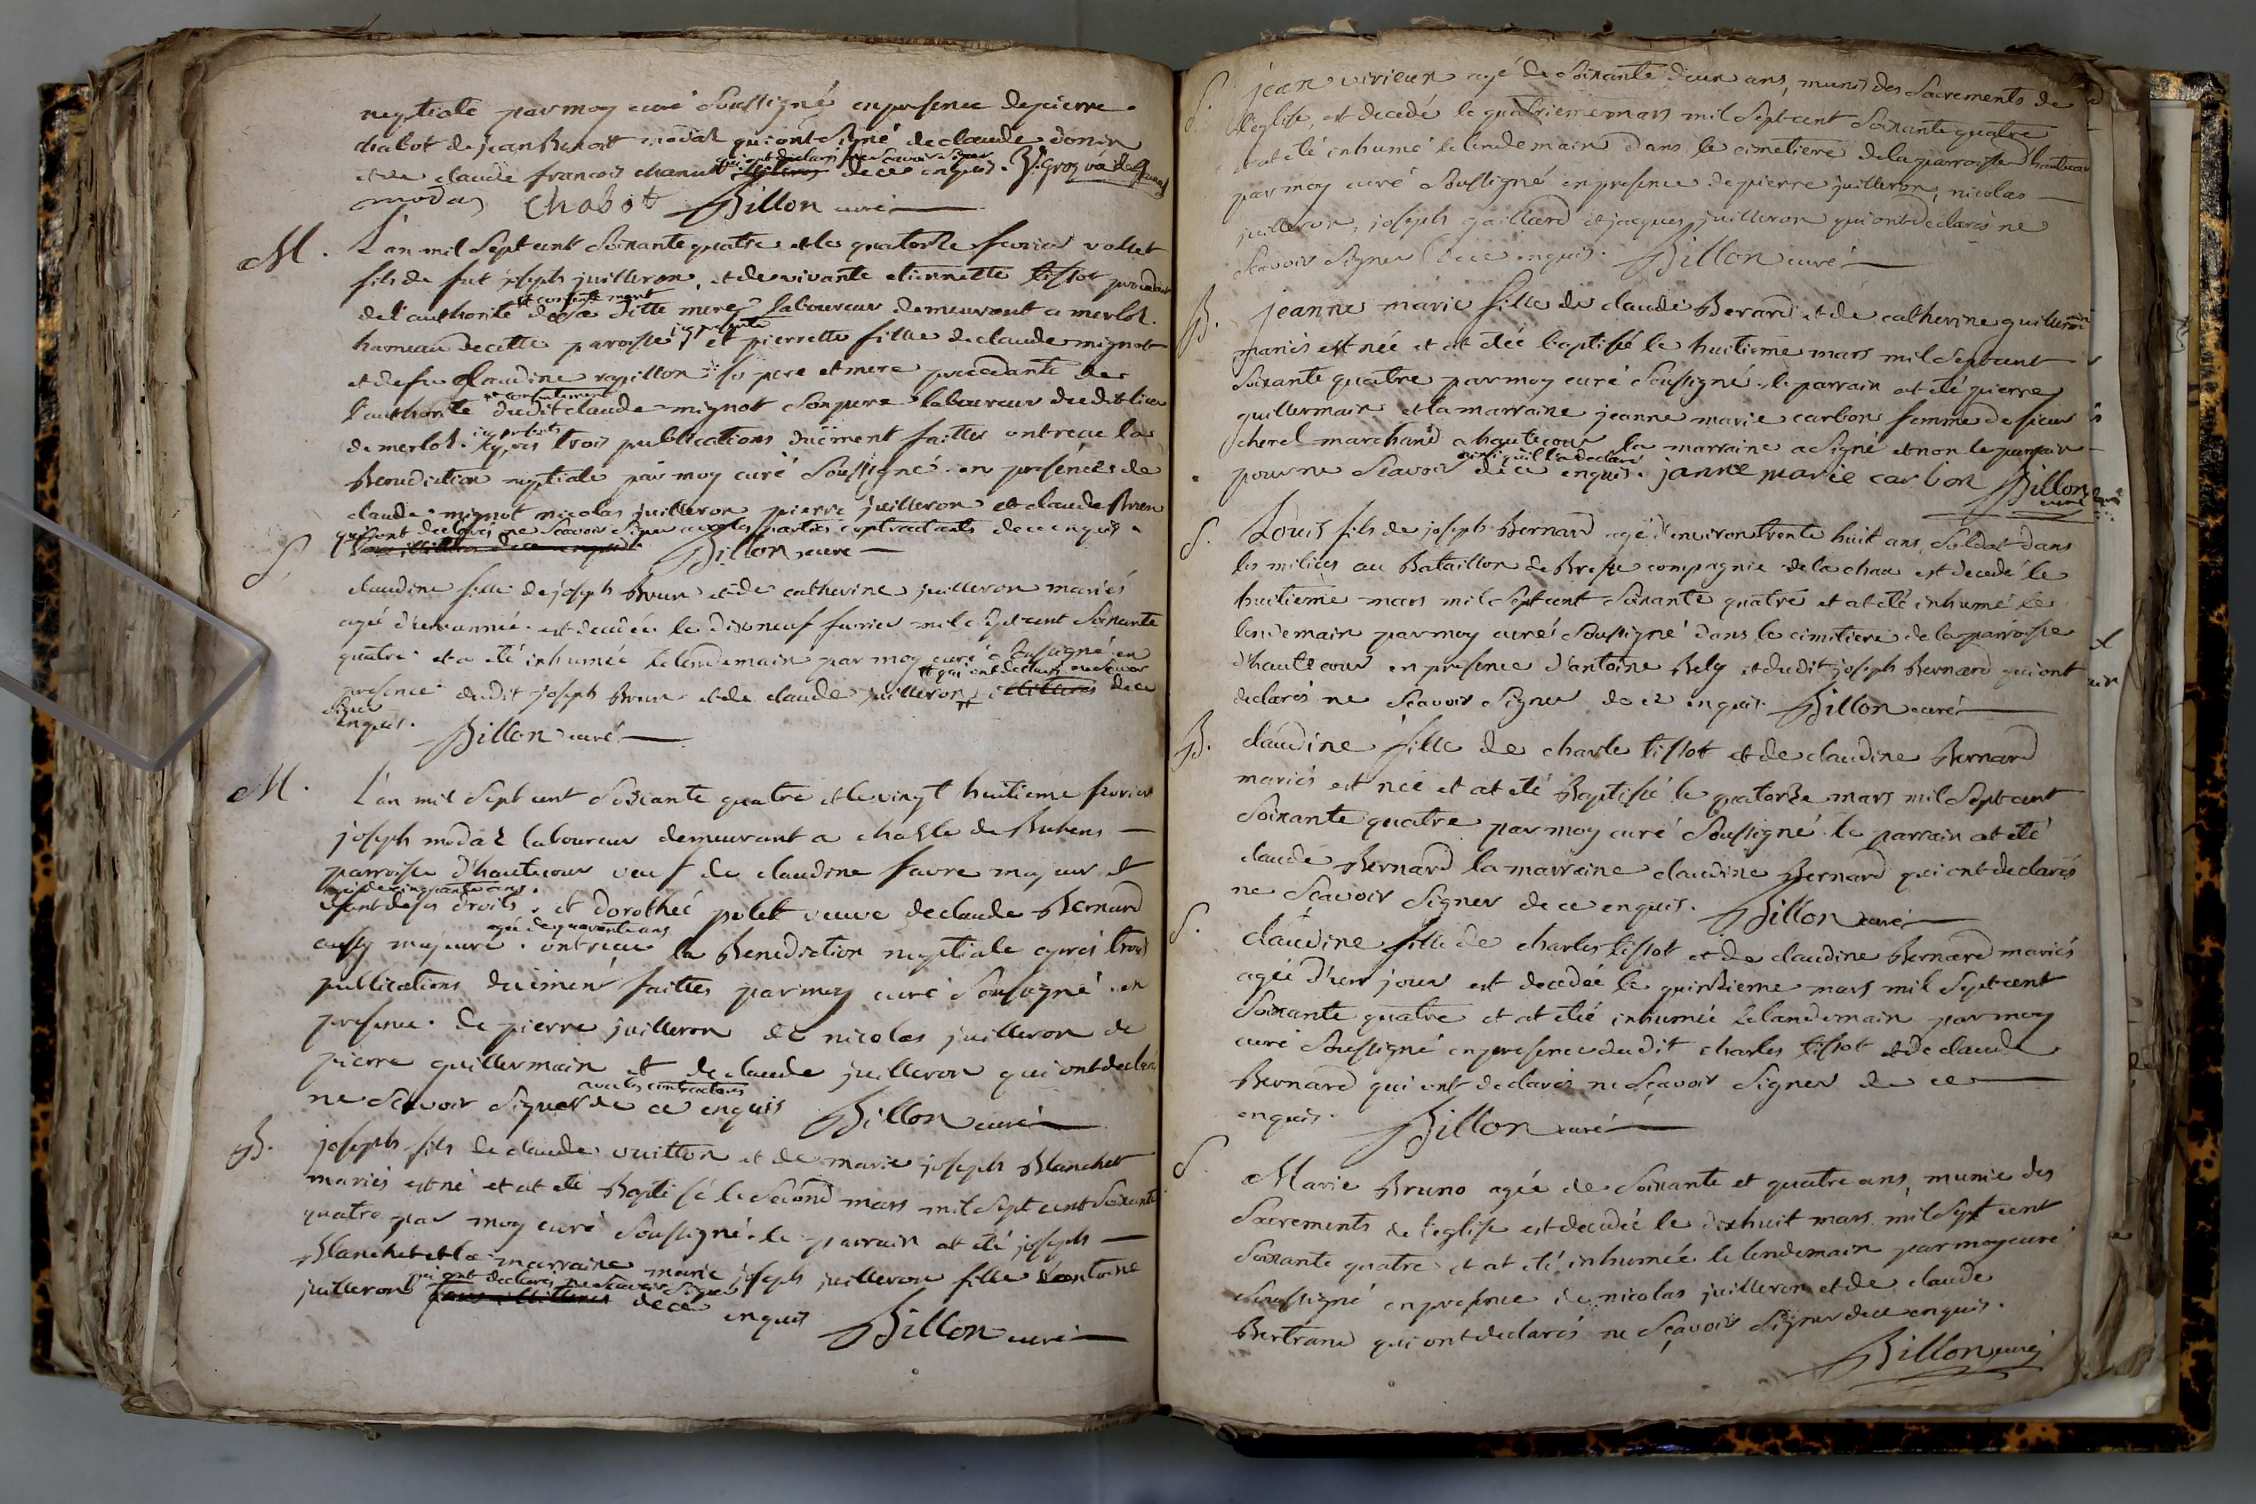 nuptiale par moy curé soussigné en presence de pierre
chabot de jean Benoit modas qui ont signé de claude donin
et de claude francois chanut qui ont declaré ne scavoir signer de ce enquis.
modas Chabot Billon curé
M. L'an mil sept cent soixante quatre et le quatorze fevrier
fils de fut joseph juilleron, et de vivante etiennette tissot procedant
de l'authorité et consentement de sa ditte mere laboureur demeurant a merloz
hameau de cette paroisse, et pierrette fille de claude mignot
et de fue claudine rapillon ses pere et mere procedante de
l'authorité et consentement dudit claude mignot son pere laboureur dudit lieu
de merloz. apres trois publications duëment faittes ont recue la
Benediction nuptiale par moy curé soussigné en presences de
claude mignot nicolas juilleron pierre juilleron et claude Brun
qui ont declarés ne scavoir signer avec les parties contractants de ce enquis.
Billon curé
S. claudine fille de joseph Brun et de catherine juilleron mariés
agé d'une année est decedée le dix neuf fevrier mil sept cent soixante
quatre et a été inhumée le lendemain par moy curé soussigné en
presence dudit joseph Brun et de claude juilleron et qui ont declarés ne scavoir signer de ce
enquis. Billon curé
M. L'an mil sept cent soixante quatre et le vingt huitieme fevrier
joseph modaz laboureur demeurant a chasle de Buhens
parroisse d'hautecour veuf de claudine favre majeur et
agé de cinquante ans.
usant de ses droits. et dorotheé polet veuve de claude Bernard
aussy majeure agée de quarente ans. ont recue la Benediction nuptiale aprés trois
publications duëment faittes par moy curé soussigné en
presence de pierre juilleron de nicolas juilleron de
pierre guillermain et de claude juilleron qui ont declarés
ne scavoir signer avec les contractans de ce enquis Billon curé
B. joseph fils de claude vuitton et de marie joseph Blanchet
mariés est né et at eté Baptisé le second mars mil sept cent soixante
quatre par moy curé soussigné. le parrain at eté joseph
Blanchet et la marraine marie joseph juilleron fille d'antoine
juilleron qui ont declarés ne scavoir signer de ce enquis
Billon curé
S. jean virieux agé de soixante deux ans, munis des sacrements de
l'eglise, est decedé le quatrieme mars mil sept cent soixante quatre
et at eté inhumé le lendemain dans le cimetiere de la parroisse d'hautecour
par moy curé soussigné en presence de pierre juilleron, nicolas
juilleron, joseph gaillard et jacques juilleron qui ont declarés ne
scavoir signer de ce enquis. Billon curé
B. jeanne marie fille de claude Berard et de catherine guillermin
mariés est née et at etée baptisé le huitieme mars mil sept cent
soixante quatre par moy curé soussigné. le parrain at eté pierre
guillermain et la marraine jeanne marie carbon femme de sieur
cherel marchand a hautecour la marraine a signé et non le parrain
pour ne scavoir ainsi qu'il l'a declaré de ce enquis. janne marie carbon Billon
curé
S. Louis fils de joseph Bernard agé d'environ trente huit ans, soldat dans
les milices au Bataillon de Bresse compagnie de la chaa est decedé le
huitieme mars mil sept cent soixante quatre et at eté inhumé le
lendemain par moy curé soussigné dans le cimitiere de la parroisse
d'hautecour en presence d'antoine Bely et dudit joseph Bernard qui ont
declarés ne scavoir signer de ce enquis Billon curé
B. claudine fille de charle tissot et de claudine Bernard
mariés est née et at eté Baptisée le quatorze mars mil sept cent
soixante quatre par moy curé soussigné. le parrain at eté
claude Bernard la marraine claudine Bernard qui ont declarés
ne scavoir signer de ce enquis. Billon curé
S. claudine fille de charles tissot et de claudine Bernard mariés
agée d'un jour est decedée le quinzieme mars mil sept cent
soixante quatre et at eté inhumée le landemain par moy
curé soussigné en presence dudit charles tissot et de claude
Bernard qui ont declarés ne scavoir signer de ce
enquis. Billon curé
S. Marie Bruno agée de soixante et quatre ans, munie des
sacrements de l'eglise est decedée le dixhuit mars mil sept cent
soixante quatre et at eté inhumée le lendemain par moy curé
soussigné en presence de nicolas juilleron et de claude
Bertrand qui ont declarés ne sçavoir signer de ce enquis.
Billon curé